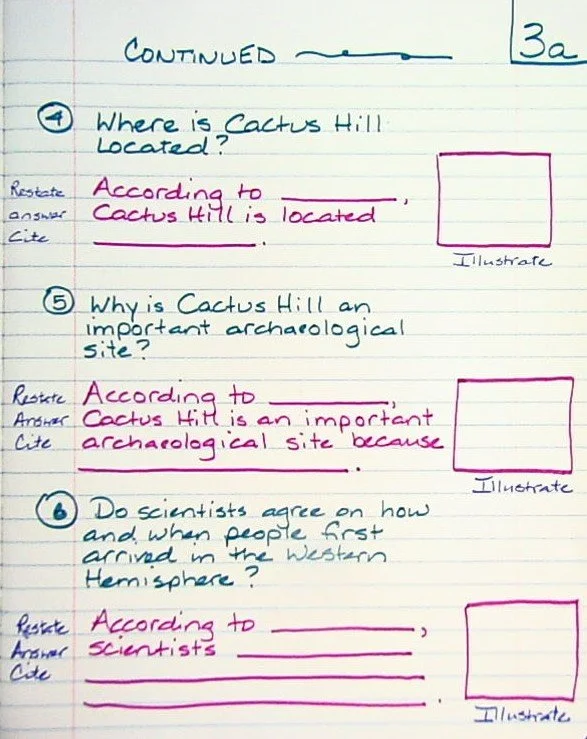 CONTINUED
3a
4 Where is Cactus Hill
Located?
Restate According to __________,
answer Cactus Hill is located
Cite __________.
Illustrate
5 Why is Cactus Hill an
important archaeological
site?
Restate According to __________,
Answer Cactus Hill is an important
Cite archaeological site because
__________.
Illustrate
6 Do scientists agree on how
and when people first
arrived in the Western
Hemisphere?
Restate According to __________,
Answer scientists __________
Cite __________
__________.
Illustrate